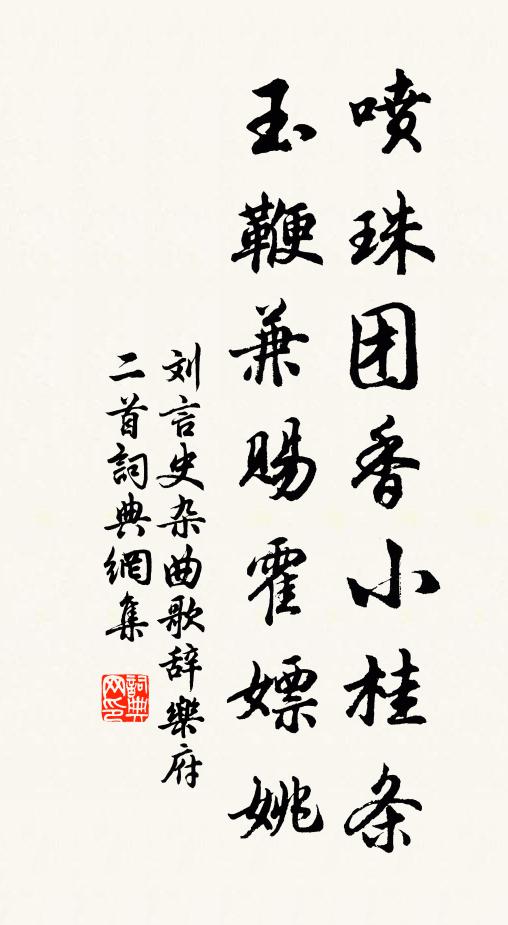 喷珠团香小桂条
玉鞭兼赐霍嫖姚
刘言史杂曲歌辞樂府
二首詞典網集
詞典
网印